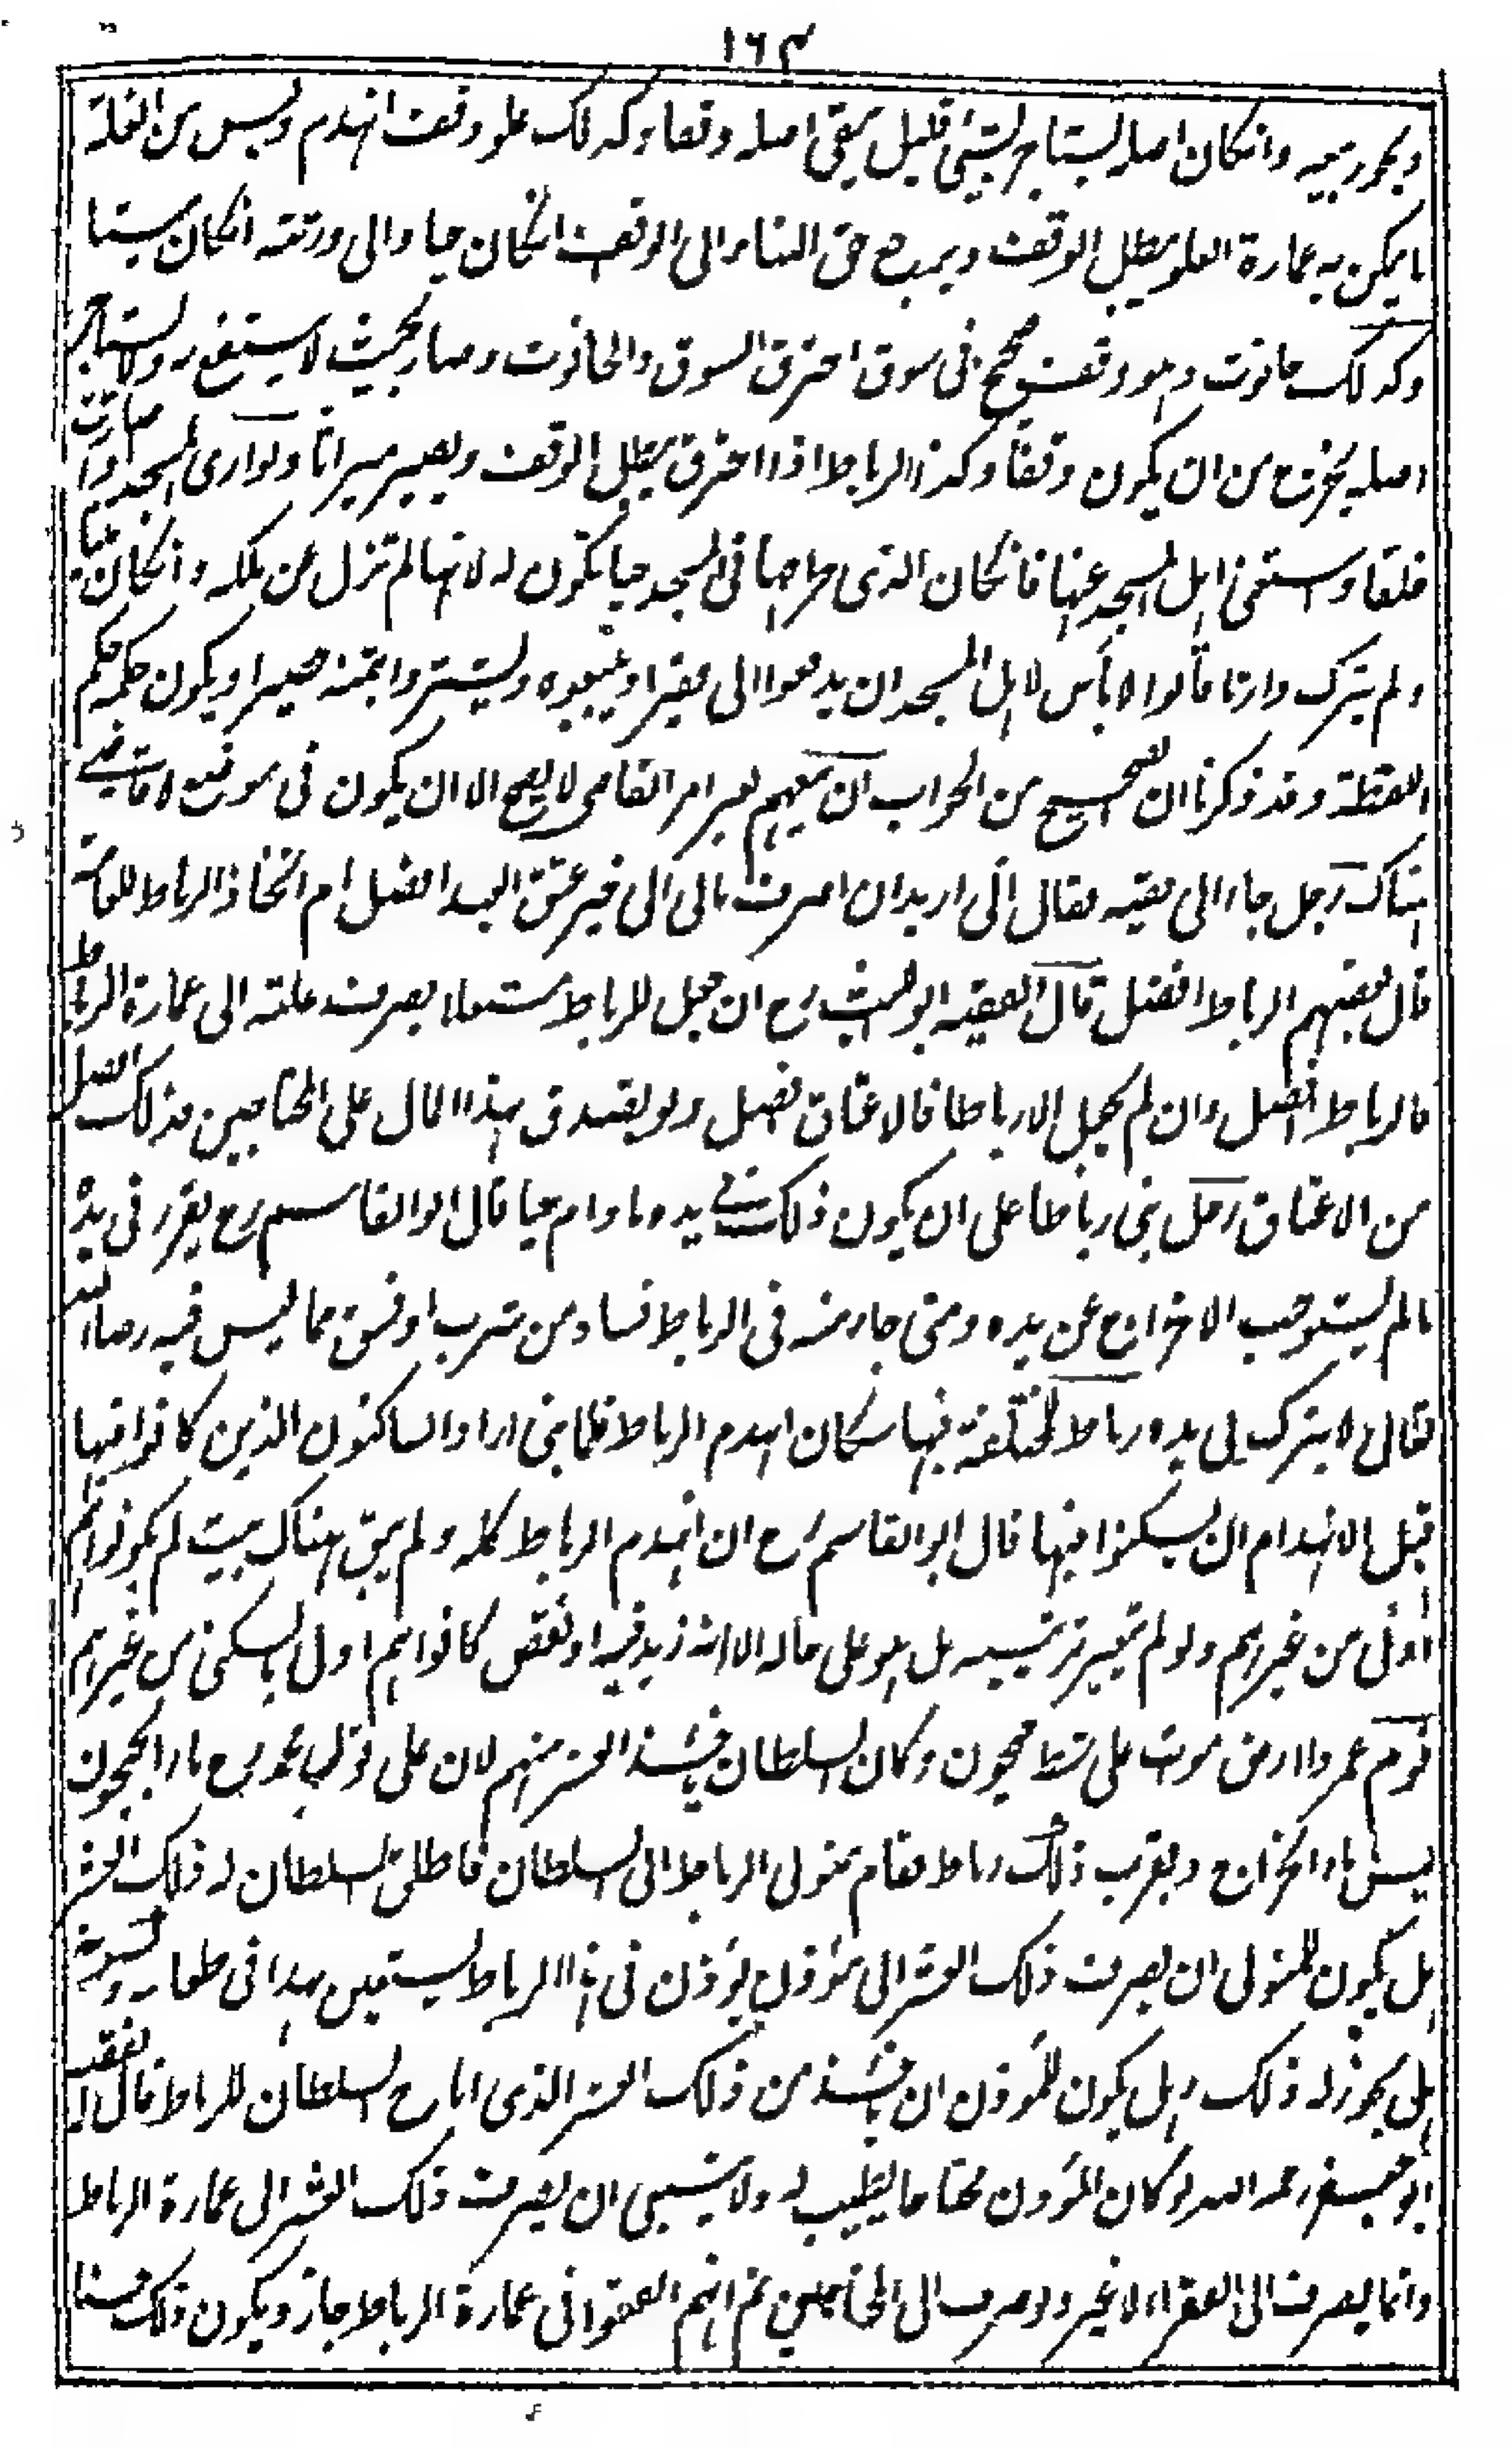 ١٦٣
ويجوز بيعه وانكان اصله يستاجر بشيئ قليل يبقى اصله وقفا وكذلك علو وقف انهدم وليس من الغلة
ما يمكن به عمارة العلو يبطل الوقف ويعود حق البناء الى الواقف انكان حيا والى ورثته انكان ميتا
وكذلك حانوت هو وقف صحيح فى سوق احترق السوق والحانوت وصار بحيث لا ينتفع به ولا يستاجر
اصله يخرج من ان يكون وقفا وكذا الرباط اذا احترق يبطل الوقف ويصير ميراثا وبوارى المسجد اذا صارت
خلقا واستغنى اهل المسجد عنها فانكان الذى طرحها فى المسجد حيا يكون له لانها لم تزل عن ملكه وانكان ميتا
ولم يترك وارثا قالوا لا بأس لاهل المسجد ان يدفعوا الى فقير او يبيعوه وليشتروا بثمنه حصيرا ويكون حكمه حكم
اللقطة وقد ذكرنا ان الصحيح من الجواب ان بيعهم بغير امر القاضى لا يصح الا ان يكون فى موضع لا قاضى
هناك رجل جاء الى فقيه فقال انى اريد ان اصرف مالى الى خير عتق العبد افضل ام اتخاذ الرباط للعامة
قال بعضهم الرباط افضل قال الفقيه ابو الليث رح ان جعل للرباط مستغلا يصرف غلته الى عمارة الرباط
فالرباط افضل وان لم يجعل الا رباطا فالاعتاق افضل ولو تصدق بهذا المال على المحتاجين فذلك افضل
من الاعتاق رجل بنى رباطا على ان يكون ذلك فى يده ما دام حيا قال ابو القاسم رح يقرر فى يده
ما لم يستوجب الاخراج عن يده ومتى جاء منه فى الرباط فساد من شرب او فسق مما ليس فيه رضا الله
تعالى لا يترك فى يده رباط المختلفة فيها سكان انهدم الرباط فلما بنى اراد الساكنون الذين كانوا فيها
قبل الانهدام ان يسكنوا فيها قال ابو القاسم رح ان انهدم الرباط كله ولم يبق هناك بيت لم يكونوا هم
اولى من غيرهم ولو لم تغير ترتيبه بل هو على حاله الا انه زيد فيه او نقص كانوا هم اولى بالسكنى من غيرهم
قوم عمروا ارض موت على شط جيحون وكان السلطان ياخذ العشر منهم لان على قول محمد رح ماء الجيحون
ليس ماء الخراج وبقرب ذلك رباط فقام متولى الرباط الى السلطان فاطلق السلطان له ذلك العشر
هل يكون للمتولى ان يصرف ذلك العشر الى مؤذن يؤذن فى هذا الرباط ليستعين بهذا فى طعامه وكسوته
هل يجوز له ذلك وهل يكون للمؤذن ان ياخذ من ذلك العشر الذى اباح السلطان للرباط قال الفقيه
ابو جعفر رحمه الله لو كان المؤذن محتاجا يطيب له ولا ينبغى ان يصرف ذلك العشر الى عمارة الرباط
وانما يصرف الى الفقراء لا غير ولو صرف الى المحتاجين ثم انهم انفقوا فى عمارة الرباط جاز ويكون ذلك حسنا